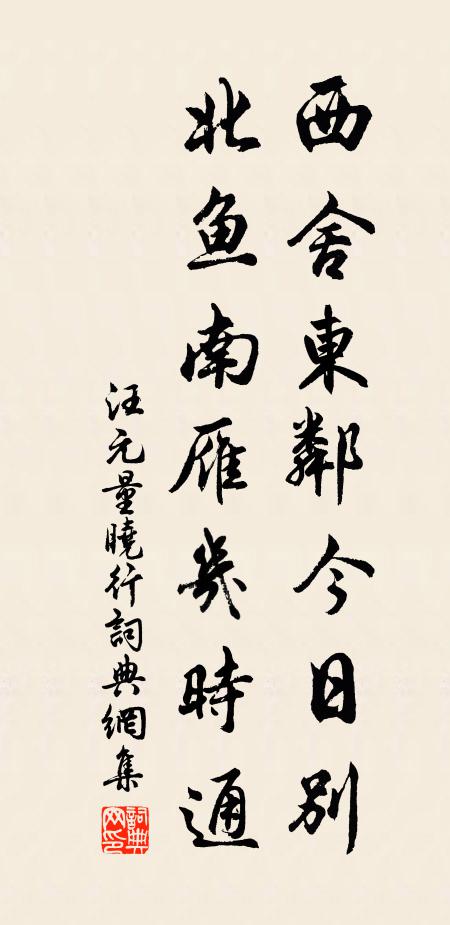 西舍東鄰今日別
北魚南雁幾時通
汪元量曉行詞典網集
詞典網印